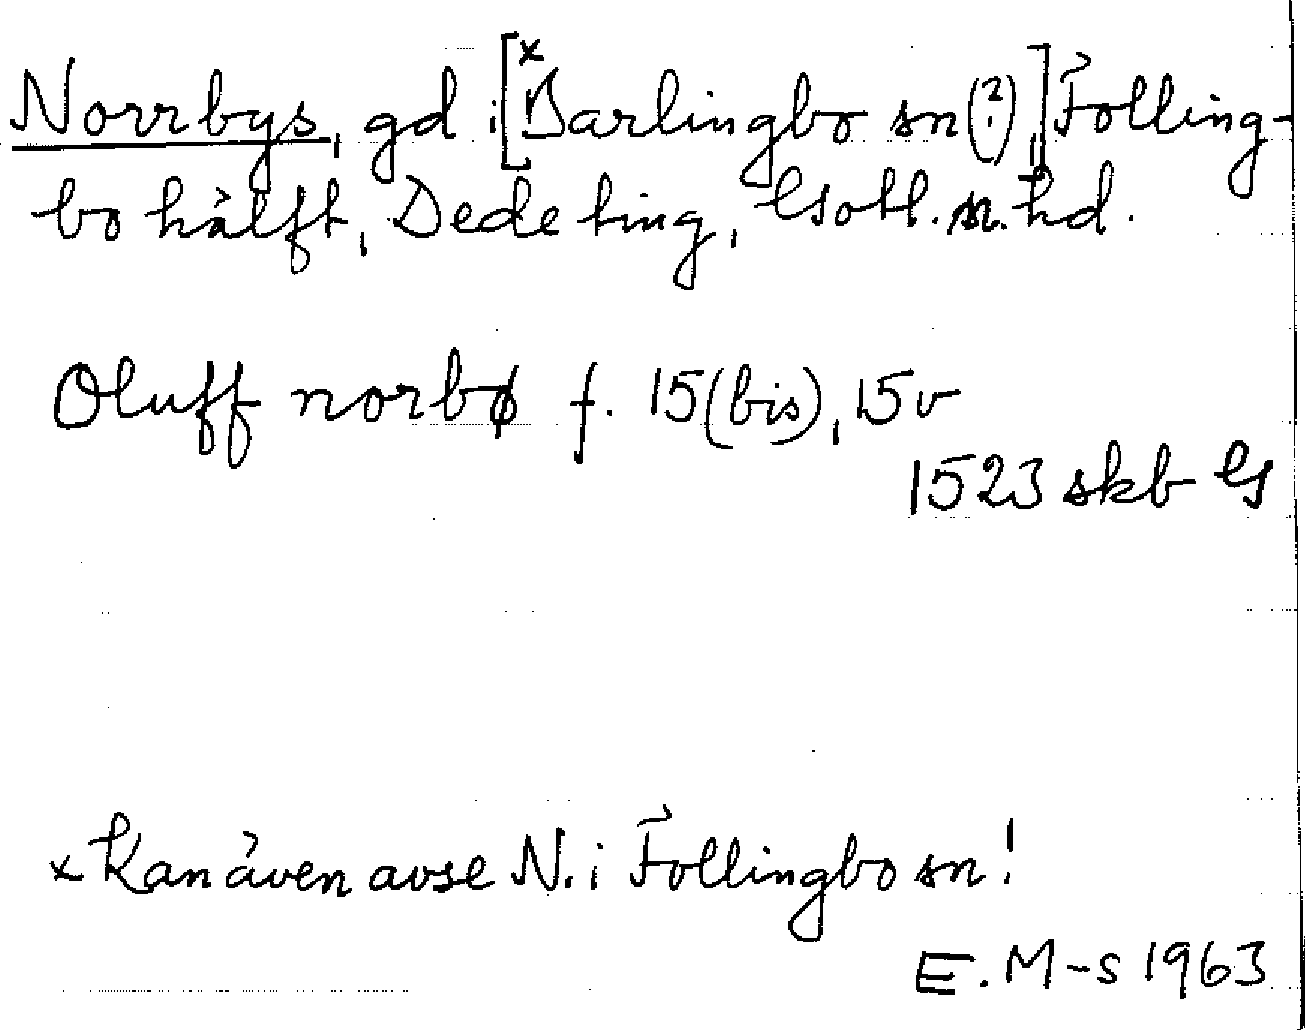 Norrbys, gd i [ˣBarlingbo sn (?)] Folling-
bo hälft, Dede ting, Gotl. n. hd.
Oluff norbø f. 15 (bis), 15 v
1523 skb G
x Kan även avse N. i Follingbo sn!
E. M-s 1963